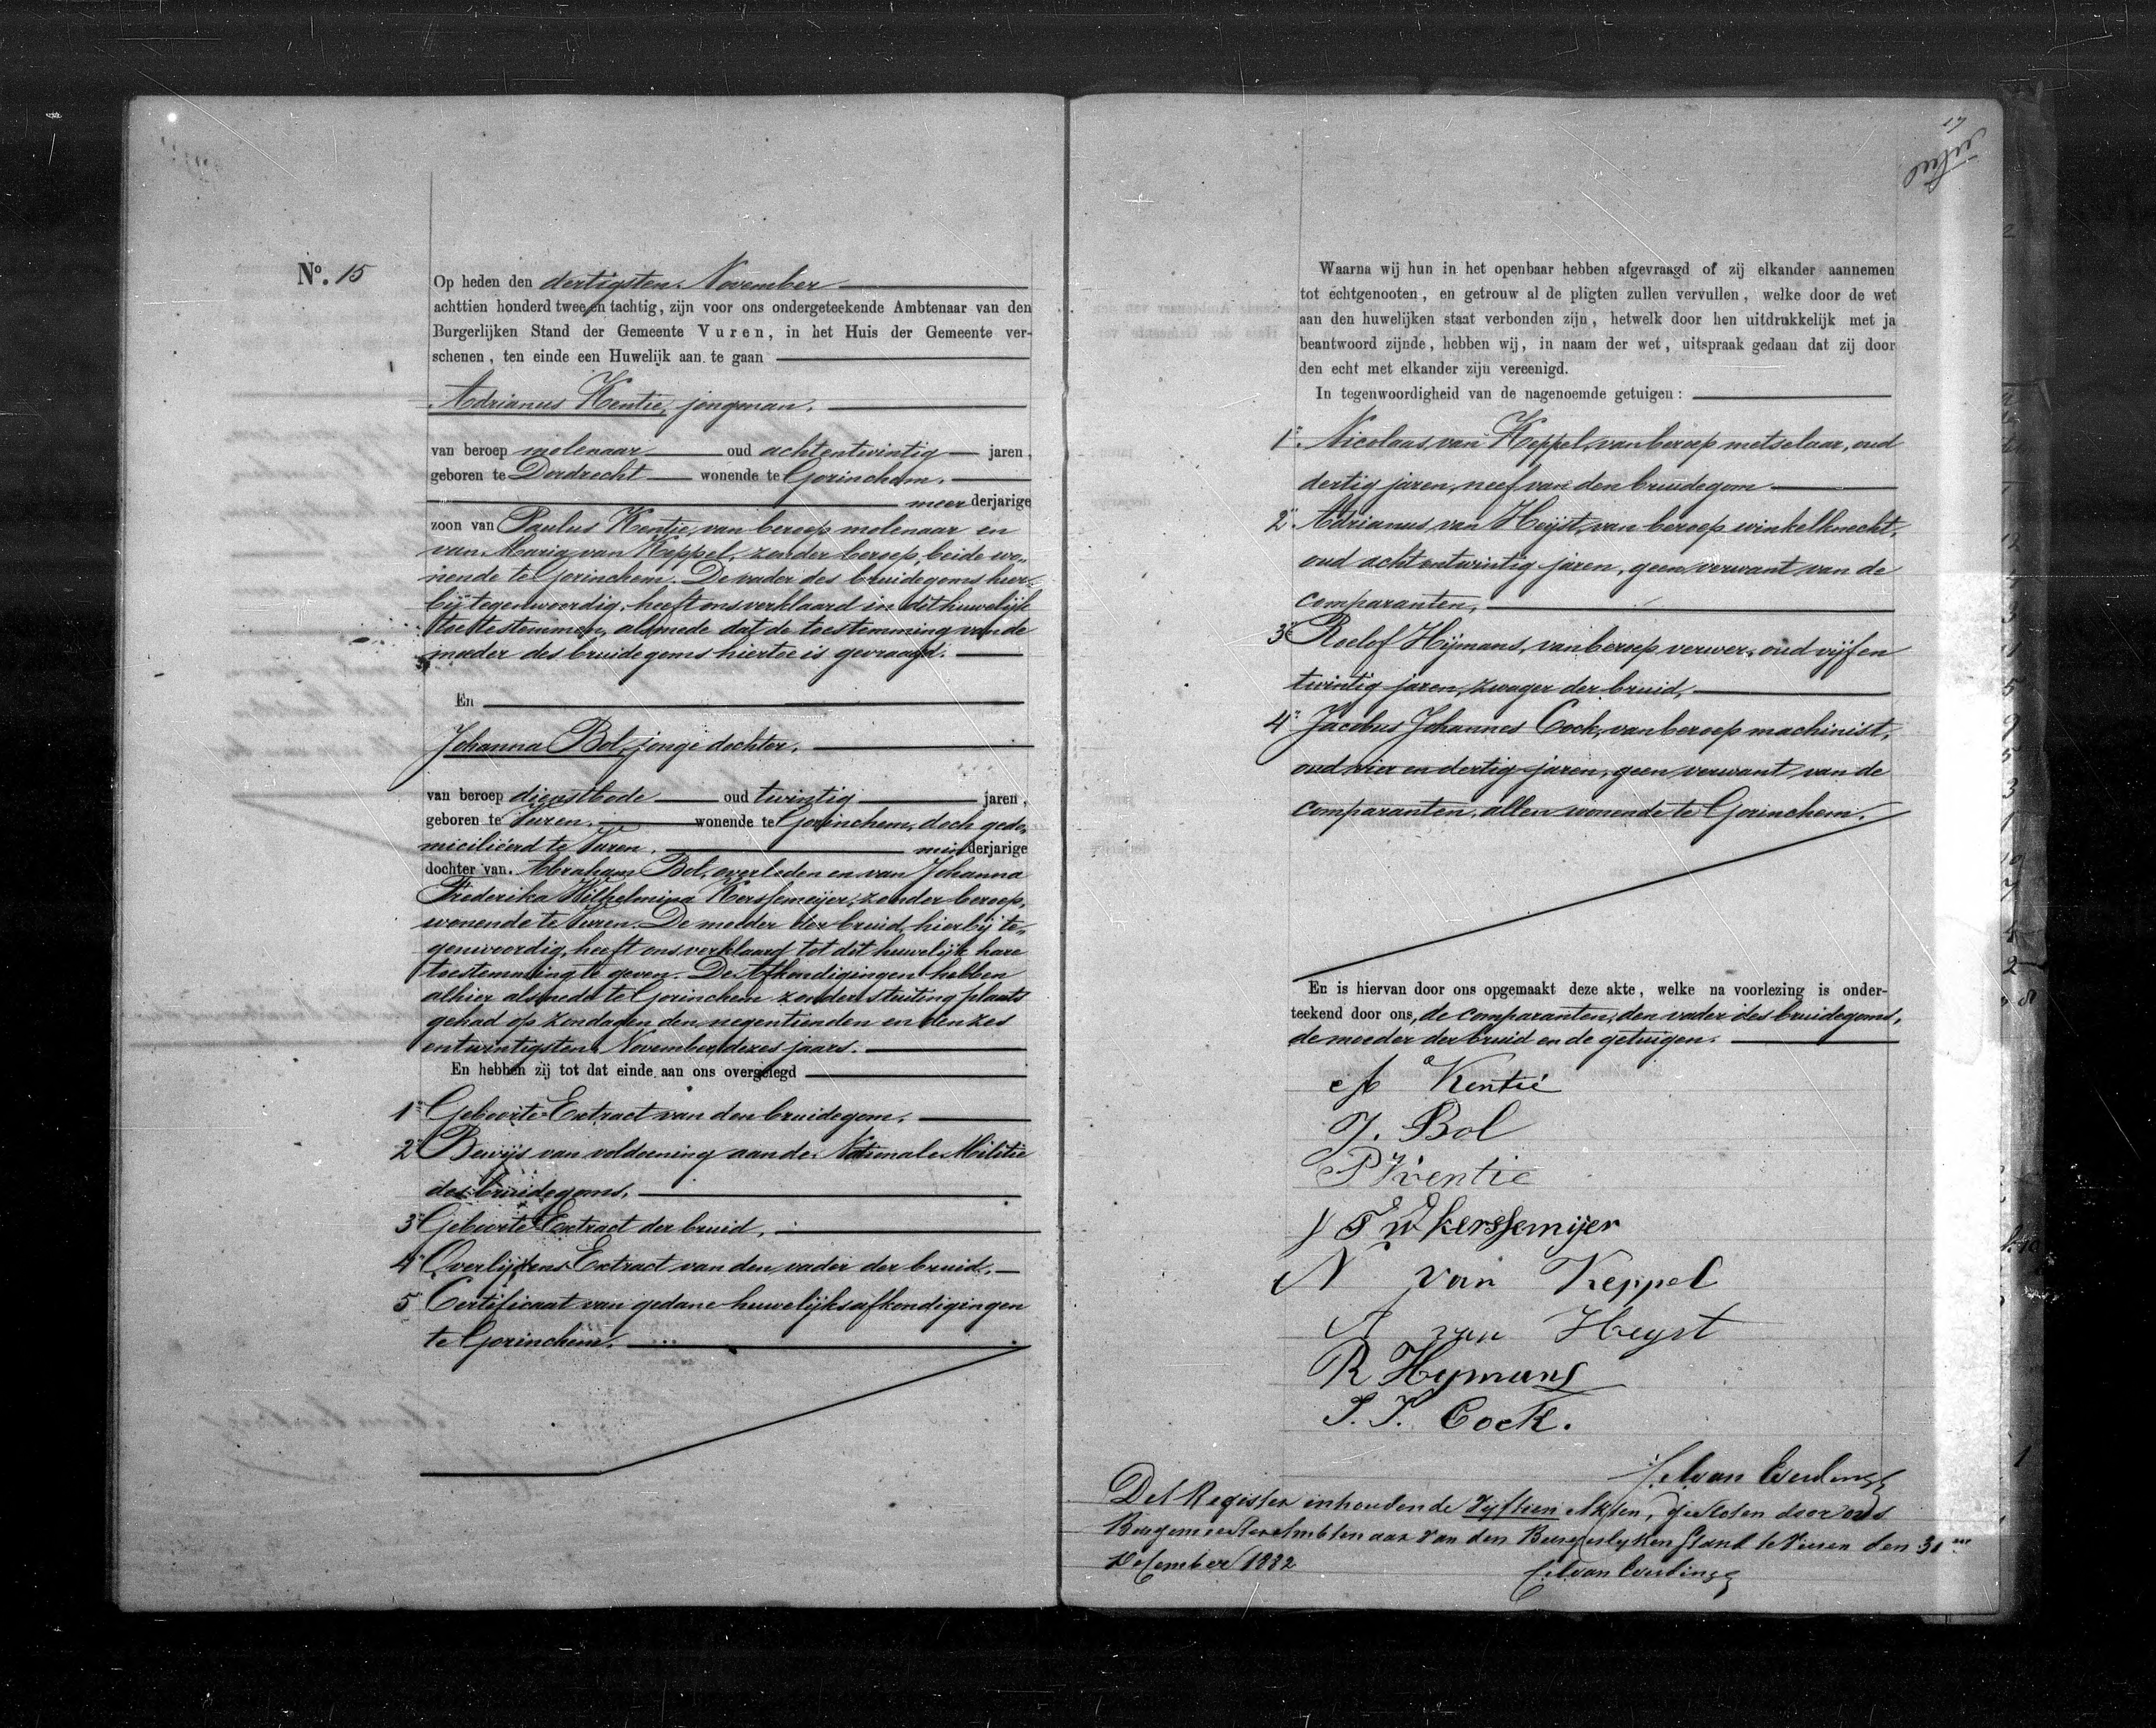 No. 15
Op heden den dertigsten November
achttien honderd twee en tachtig, zijn voor ons ondergeteekende Ambtenaar van den
Burgerlijken Stand der Gemeente Vuren, in het Huis der Gemeente ver-
schenen, ten einde een Huwelijk aan te gaan
Adrianus Kentie, jongman.
van beroep molenaar oud achtentwintig jaren,
geboren te Dordrecht wonende te Gorinchem.
meerderjarige
zoon van Paulus Kentie, van beroep molenaar en
van Maria van Keppel, zonder beroep, beide wo-
nende te Gorinchem. De vader des bruidegoms hier-
bij tegenwoordig, heeft ons verklaard in dit huwelijk
toe te stemmen, alsmede dat de toestemming van de
moeder des bruidegoms hiertoe is gevraagd.
En
Johanna Bol, jonge dochter.
van beroep dienstbode oud twintig jaren,
geboren te Vuren. wonende te Gorinchem, doch gedo-
micilieerd te Vuren. minderjarige
dochter van Abraham Bol, overleden en van Johanna
Frederika Wilhelmina Kerssemeijer, zonder beroep,
wonende te Vuren. De moeder der bruid, hierbij te-
genwoordig, heeft ons verklaard tot dit huwelijk hare
toestemming te geven. De Afkondigingen hebben
alhier alsmede te Gorinchem zonder stuiting plaats
gehad op zondagen den negentienden en den zes
entwintigsten November dezes jaars.
En hebben zij tot dat einde aan ons overgelegd
1° Geboorte-Extract van den bruidegom.
2° Bewijs van voldoening aan de Nationale Militie
des bruidegoms.
3° Geboorte Extract der bruid.
4° Overlijdens Extract van den vader der bruid.
5° Certificaat van gedane huwelijksafkondigingen
te Gorinchem.
17
Waarna wij hun in het openbaar hebben afgevraagd of zij elkander aannemen
tot echtgenooten, en getrouw al de pligten zullen vervullen, welke door de wet
aan den huwelijken staat verbonden zijn, hetwelk door hen uitdrukkelijk met ja
beantwoord zijnde, hebben wij, in naam der wet, uitspraak gedaan dat zij door
den echt met elkander zijn vereenigd.
In tegenwoordigheid van de nagenoemde getuigen:
1°. Nicolaas van Keppel, van beroep metselaar, oud
dertig jaren, neef van den bruidegom
2° Adrianus van Heijst, van beroep winkelknecht,
oud achtentwintig jaren, geen verwant van de
comparanten,
3° Roelof Hijmans, van beroep verwer, oud vijf en
twintig jaren, zwager der bruid,
4° Jacobus Johannes Cock, van beroep machinist,
oud vier en dertig jaren, geen verwant van de
comparanten, allen wonende te Gorinchem.
En is hiervan door ons opgemaakt deze akte, welke na voorlezing is onder-
teekend door ons, de comparanten, den vader des bruidegoms,
de moeder der bruid en de getuigen.
A Kentie
J. Bol
P Kentie
J F W kerssemijer
N van Keppel
A van Heyst
R Hymans
J. J. Cock.
van Everdingen
Dit Register inhoudende Vyftien Akten, gesloten door ons
Burgemeester Ambtenaar van den Burgerlyken Stand te Vuren den 31en
December 1882
van Everdingen